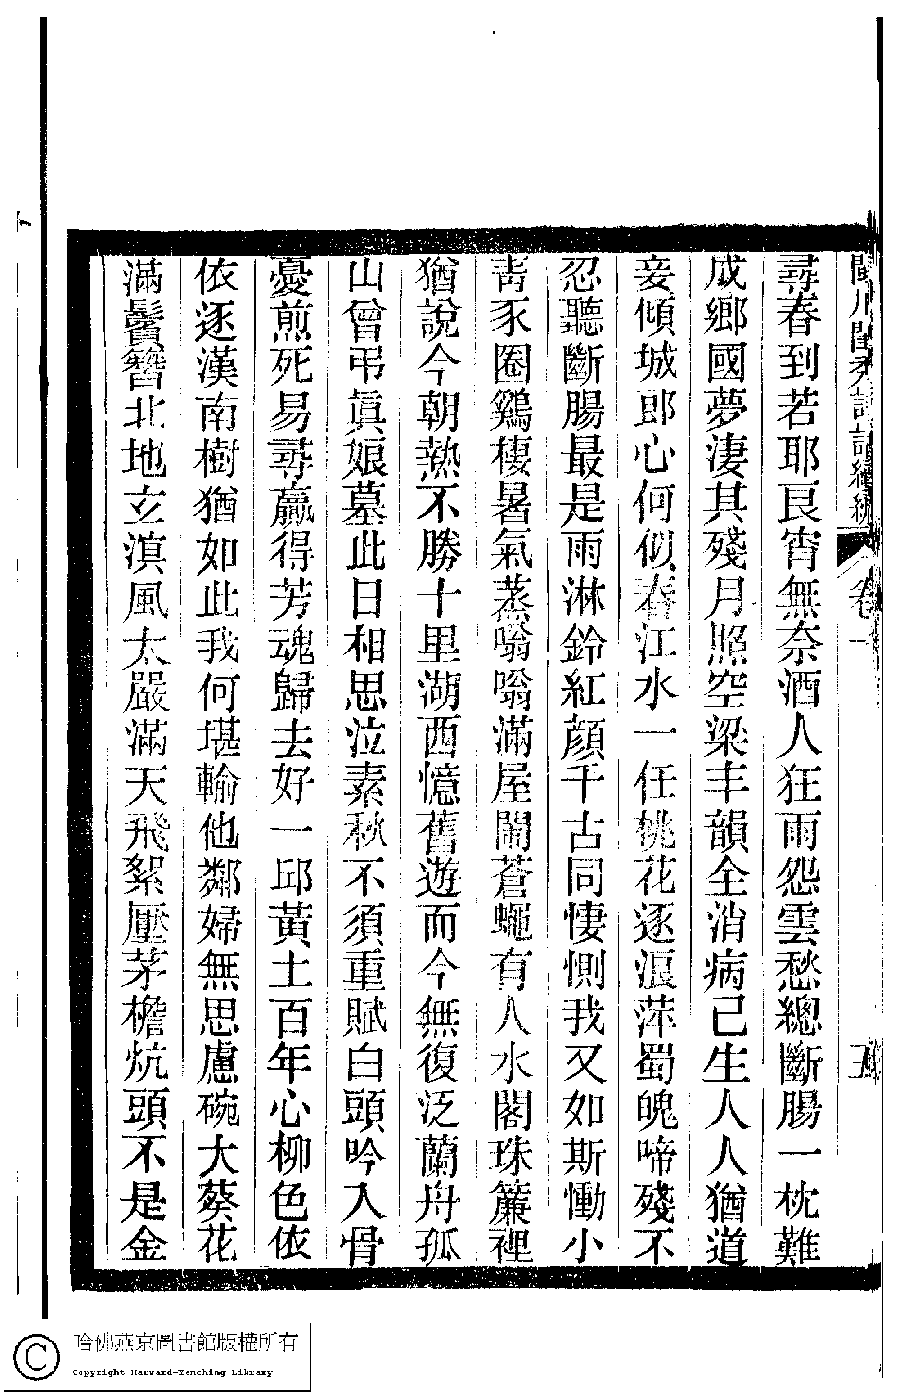 閩川閨秀詩話續編 卷一 五
尋春到若耶艮宵無奈酒人狂雨怨雲愁總斷腸一枕難
成鄉國夢淒其殘月照空梁丰韻全消病已生人人猶道
妾傾城郎心何似春江水一任桃花逐浪萍蜀魄啼殘不
忍聽斷腸最是雨淋鈴紅顔千古同悽惻我又如斯慟小
青豕圈鷄棲暑氣蒸嗡嗡滿屋鬧蒼蠅有人水閣珠簾裡
猶說今朝熱不勝十里湖西憶舊遊而今無復泛蘭舟孤
山曾弔眞娘墓此日相思泣素秋不須重賦白頭吟入骨
憂煎死易尋贏得芳魂歸去好一邱黃土百年心柳色依
依逐漢南樹猶如此我何堪輸他鄰婦無思慮碗大葵花
滿鬢簪北地立滇風太嚴滿天飛絮壓茅檐炕頭不是金
哈佛燕京圖書館版權所有
Copyright Harvard-Yenching Library